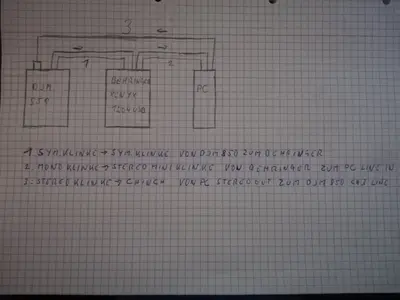 3
1
2
DJM
850
BEHRINGER
XENYX
1204USB
PC
1. SYM.KLINKE → SYM.KLINKE VON DJM 850 ZUM BEHRINGER
2. MONO KLINKE → STEREO MINI KLINKE VON BEHRINGER ZUM PC LINE IN
3. STEREO KLINKE → CHINCH VON PC STEREO OUT ZUM DJM 850 LINE